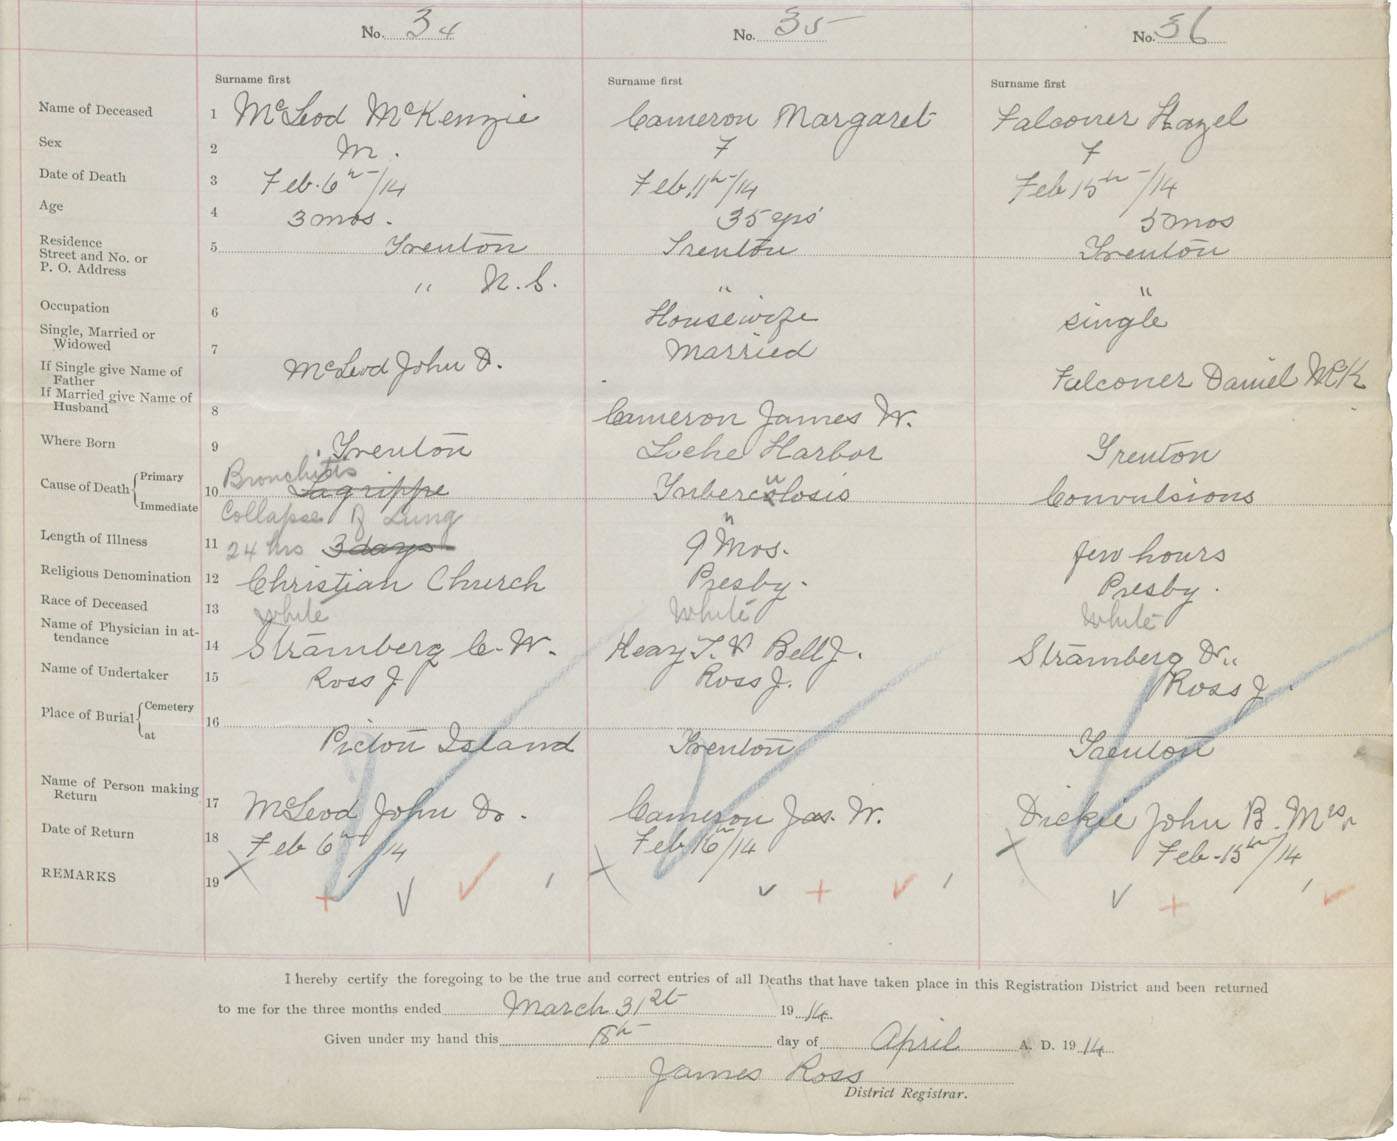 No. 34 No. 35 No. 36
Surname first Surname first Surname first
Name of Deceased 1 McLeod McKenzie Cameron Margaret Falconer Hazel
Sex 2 M. F F
Date of Death 3 Feb. 6th/14 Feb. 11th/14 Feb 15th/14
Age 4 3 mos. 35 yrs 5 mos
Residence 5 Trenton Trenton Trenton
Street and No. or
P. O. Address " N. S. " "
Occupation 6 Housewife single
Single, Married or
Widowed 7 Married
If Single give Name of
Father McLeod John D. Falconer Daniel McK
If Married give Name of
Husband 8 Cameron James W.
Where Born 9 Trenton Harbor Trenton
Cause of Death Primary Bronchitis
10 Lagrippe Tuberculosis Convulsions
Immediate Collapse of Lung "
Length of Illness 11 24 hrs 3 days 9 Mos. few hours
Religious Denomination 12 Christian Church Presby. Presby.
Race of Deceased 13 White White White
Name of Physician in at-
tendance 14 Stramberg C. W. Keay T. & Bell J. Stramberg Dr.
Name of Undertaker 15 Ross J Ross J. Ross J.
Place of Burial Cemetery 16
at Pictou Island Trenton Trenton
Name of Person making
Return 17 McLeod John D. Cameron Jas. W. Dickie John B. Mrs.
Date of Return 18 Feb 6th/14 Feb 16th/14 Feb-15th/14
REMARKS 19
I hereby certify the foregoing to be the true and correct entries of all Deaths that have taken place in this Registration District and been returned
to me for the three months ended March 31st 1914.
Given under my hand this 18th day of April A. D. 1914
James Ross
District Registrar.